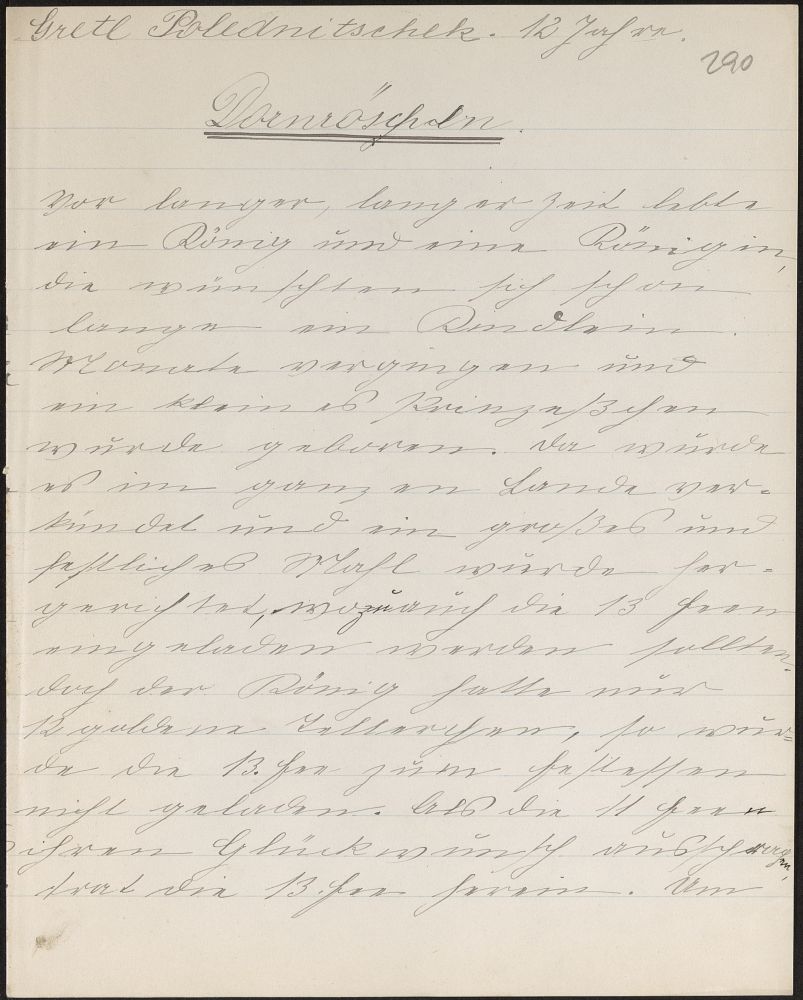 Gretl Polednitschek. 12 Jahre.
290
Dornröschen.
Vor langer, langer Zeit lebte
ein König und eine Königin,
die wünschten sich schon
lange ein Kindlein.
Monate vergingen und
ein kleines Prinzeßchen
wurde geboren. Da wurde
es im ganzen Lande ver-
kündet und ein großes und
festliches Mahl wurde her-
gerichtet, wozu auch die 13 Feen
eingeladen werden sollten,
doch der König hatte nur
12 goldene Tellerchen, so wur-
de die 13. Fee zum Festessen
nicht geladen. Als die 11 Feen
ihren Glückwunsch
trat die 13. Fee herein. Um